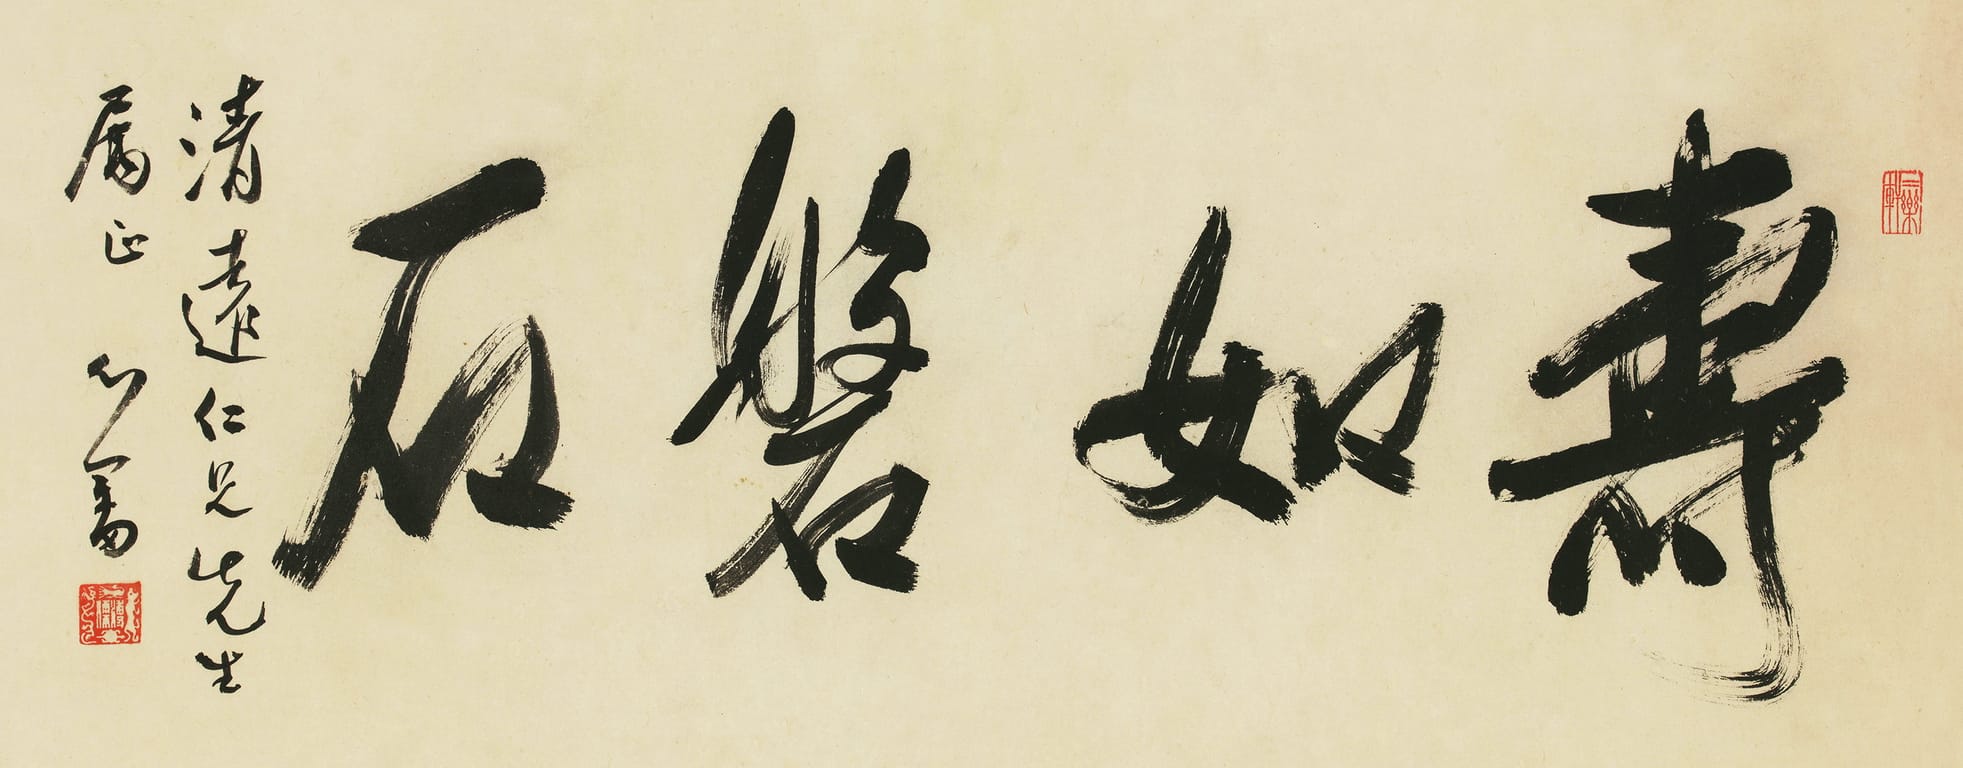 壽如磐石
清遠仁兄先生
屬正 心畬